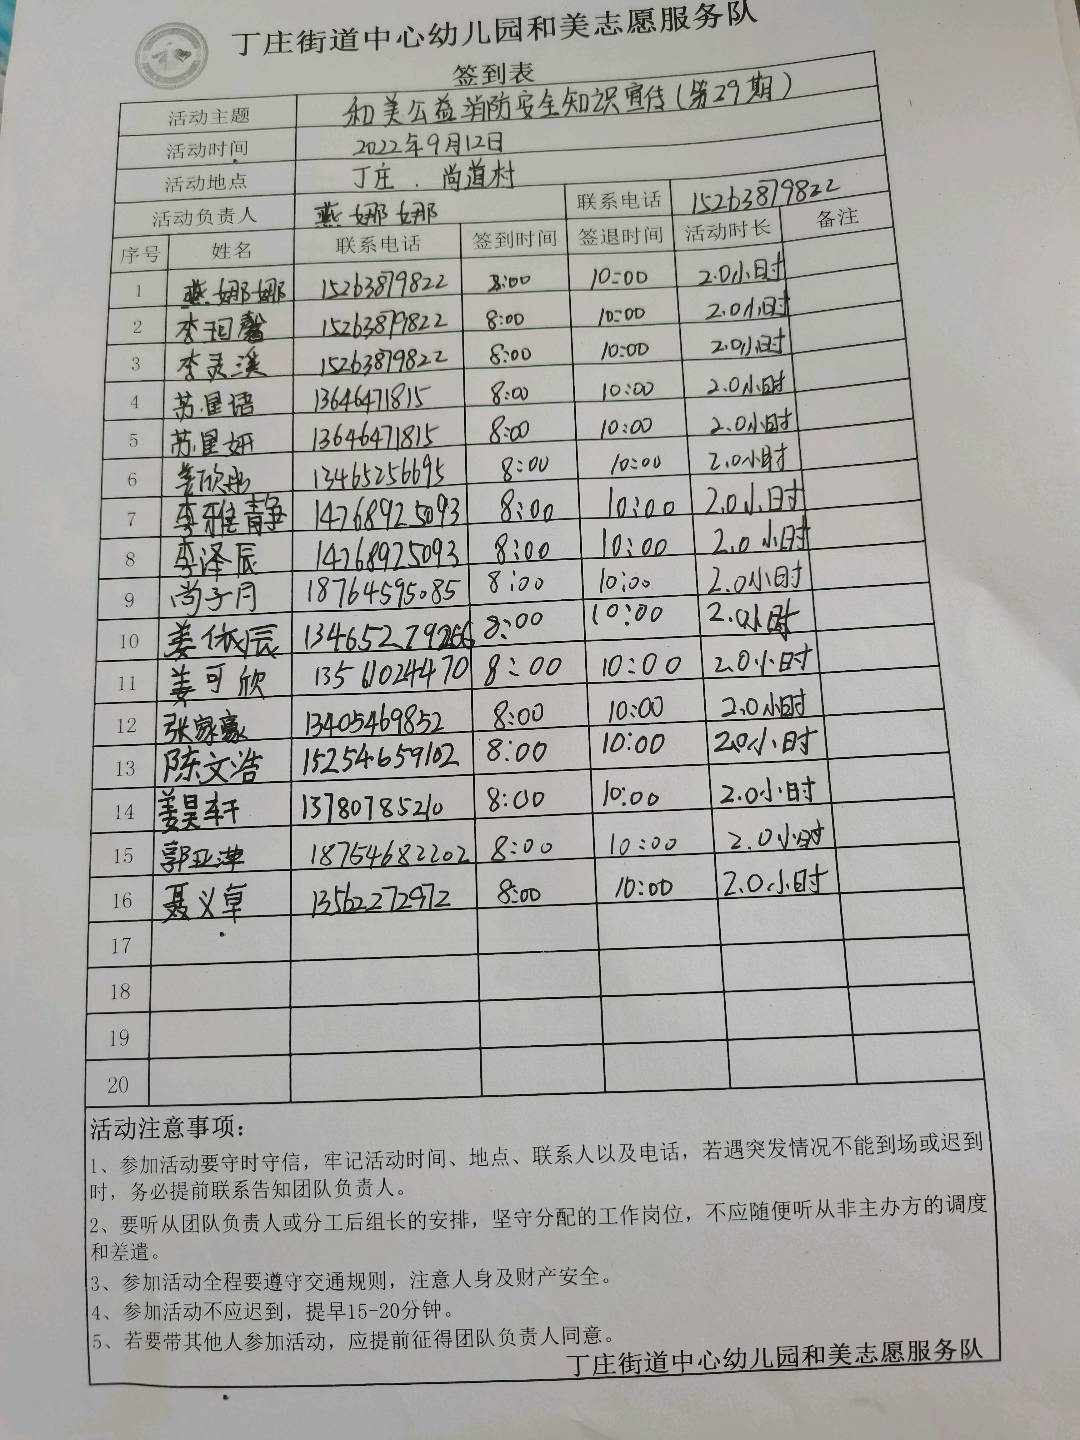 丁庄街道中心幼儿园和美志愿服务队
签到表
活动主题 和美公益消防安全知识宣传(第29期)
活动时间 2022年9月12日
活动地点 丁庄.尚道村
活动负责人 燕娜娜 联系电话 15263879822
序号 姓名 联系电话 签到时间 签退时间 活动时长 备注
1 燕娜娜 15263879822 8:00 10:00 2.0小时
2 李玥馨 15263879822 8:00 10:00 2.0小时
3 李灵溪 15263879822 8:00 10:00 2.0小时
4 苏星语 13646471815 8:00 10:00 2.0小时
5 苏星妍 13646471815 8:00 10:00 2.0小时
6 姜欣彤 13465256695 8:00 10:00 2.0小时
7 李雅静 14768925093 8:00 10:00 2.0小时
8 李泽辰 14768925093 8:00 10:00 2.0小时
9 尚子月 18764595085 8:00 10:00 2.0小时
10 姜依辰 13465279266 8:00 10:00 2.0小时
11 姜可欣 13561024470 8:00 10:00 2.0小时
12 张家豪 13405469852 8:00 10:00 2.0小时
13 陈文浩 15254659102 8:00 10:00 2.0小时
14 姜昊轩 13780785210 8:00 10:00 2.0小时
15 郭亚萍 18754682202 8:00 10:00 2.0小时
16 聂义卓 13562272972 8:00 10:00 2.0小时
17
18
19
20
活动注意事项：
1、参加活动要守时守信，牢记活动时间、地点、联系人以及电话，若遇突发情况不能到场或迟到
时，务必提前联系告知团队负责人。
2、要听从团队负责人或分工后组长的安排，坚守分配的工作岗位，不应随便听从非主办方的调度
和差遣。
3、参加活动全程要遵守交通规则，注意人身及财产安全。
4、参加活动不应迟到，提早15-20分钟。
5、若要带其他人参加活动，应提前征得团队负责人同意。
丁庄街道中心幼儿园和美志愿服务队